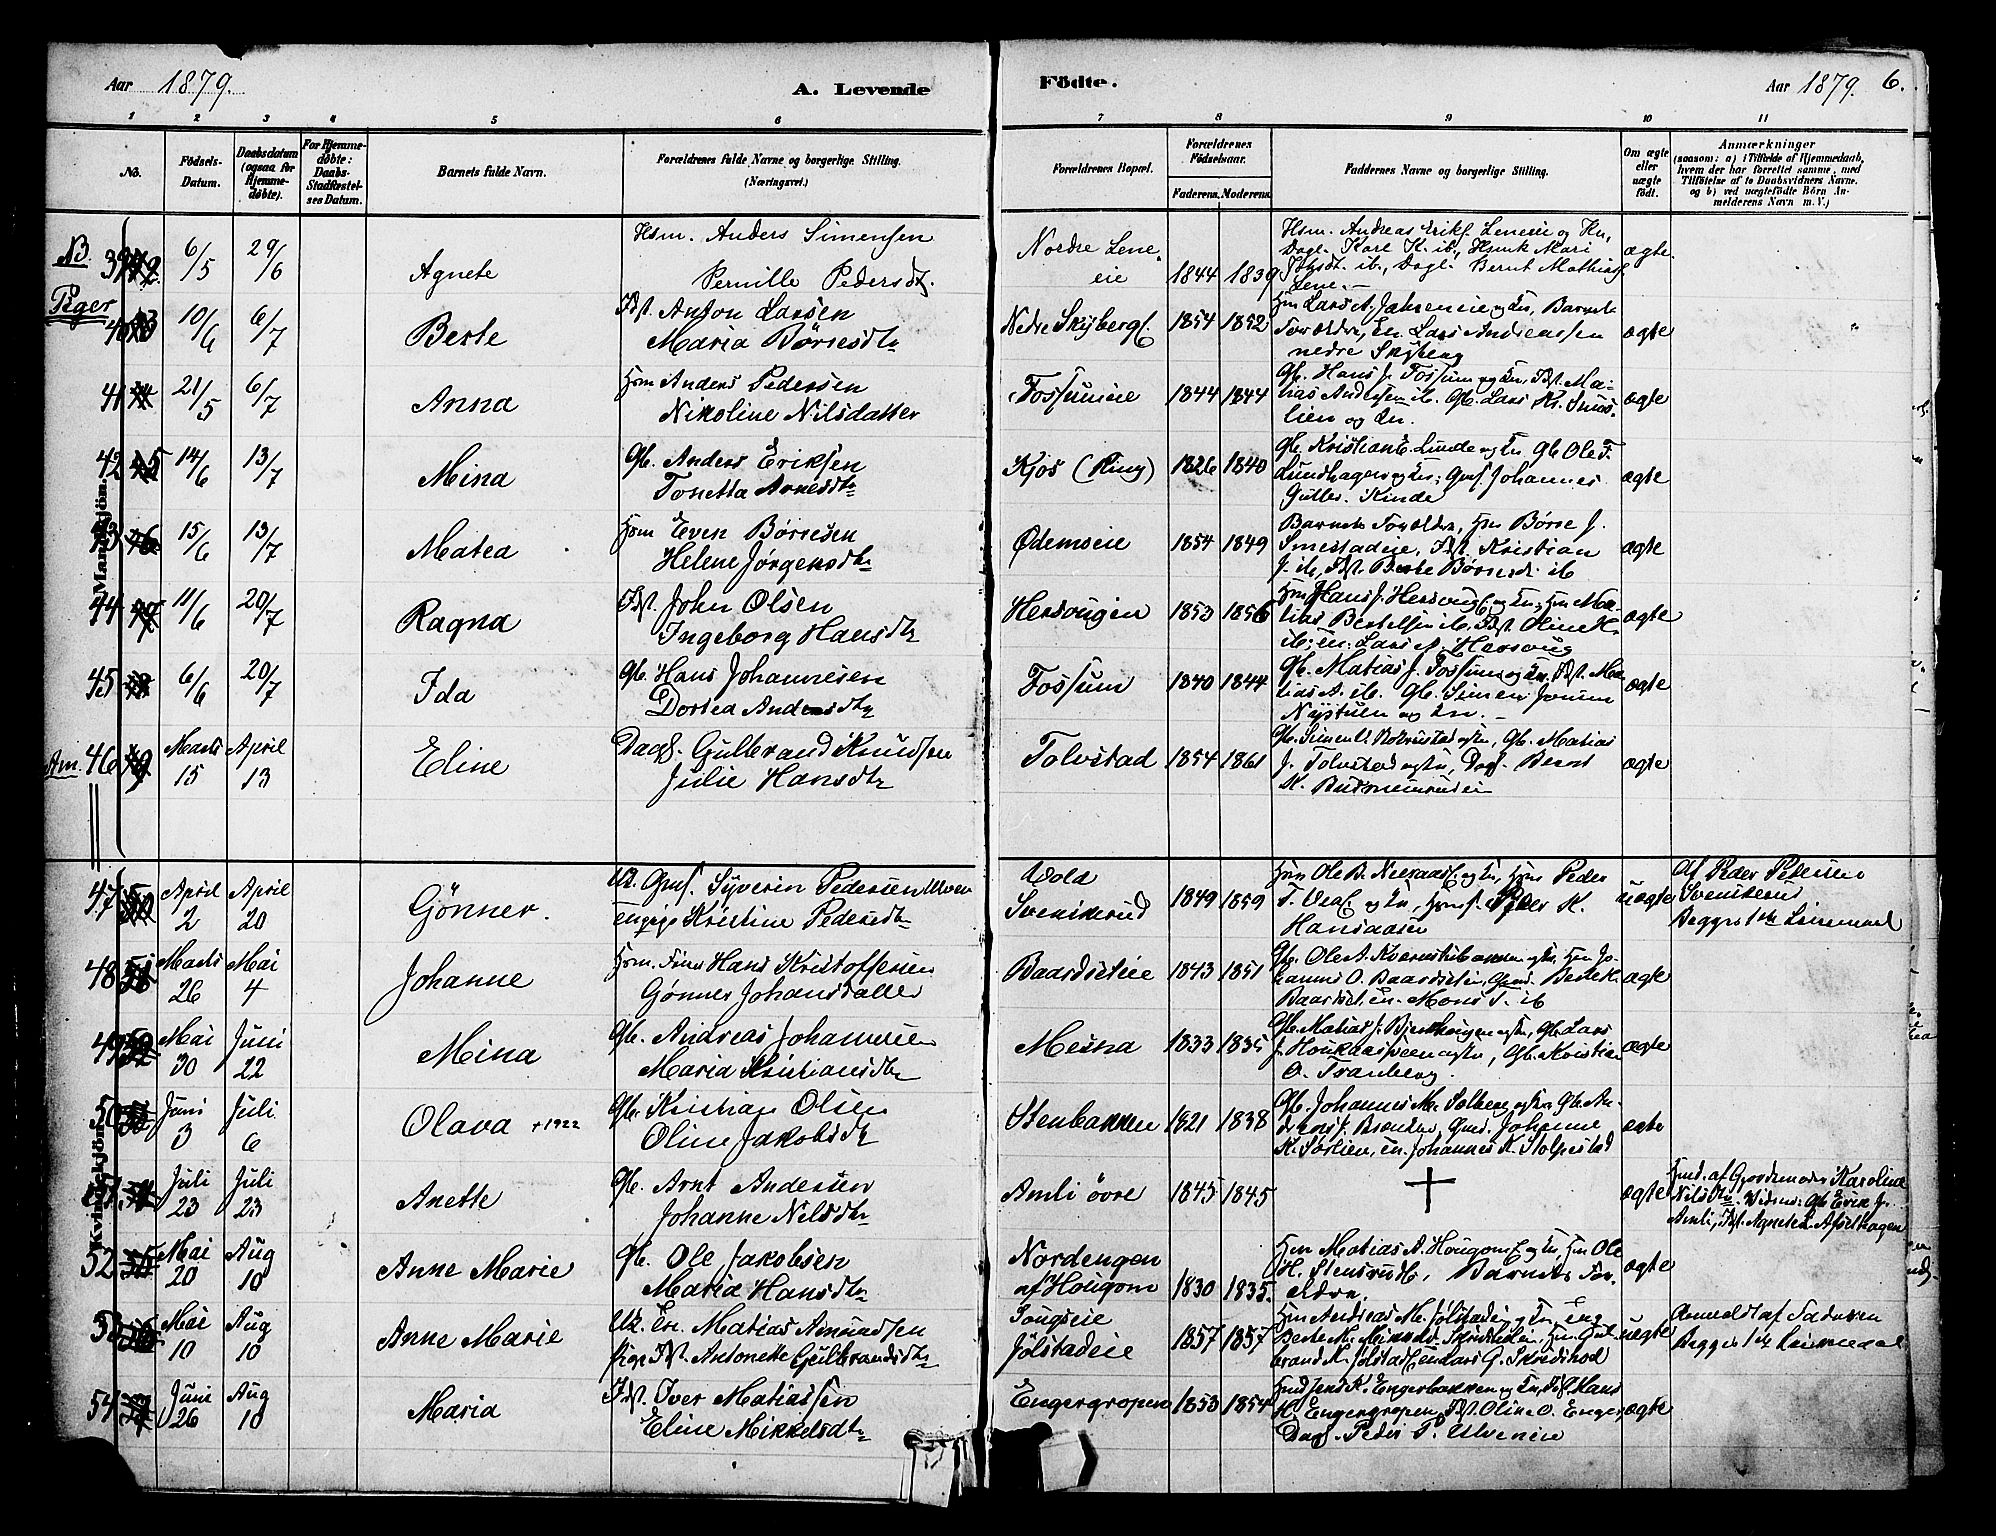 Aar 1879. A. Levende Födte. Aar 1879. 6.
1 2 3 4 5 6 7 8 9 10 11
No. Födsels-Datum. Daabsdatum (ogsaa for Hjemmedöbte). For Hjemmedöbte: Daabs-Stadfæstelses Datum. Barnets fulde Navn. Forældrenes fulde Navne og borgerlige Stilling. (Næringsvei.) Forældrenes Bopæl. Forældrenes Födselsaar. Faderens. Moderens. Faddernes Navne og borgerlige Stilling. Om ægte eller uægte födt. Anmærkninger (saasom: a) i Tilfælde af Hjemmedaab, hvem der har forrettet samme, med Tilföielse af to Daabsvidners Navne, og b) ved uægtefödte Börn Anmelderens Navn m. V.)
Mandkjön.
Kvindekjön.
B.
Piger
39 6/5 29/6 Agnete Hsm. Anders Simensen
Pernille Pedersdt. Nordre Lene-
eie 1844 1839 Hsm. Andreas Eriks. Leneeie og Ku,
Dagl. Karl K. ib., Hsmk Mari
ib., Dagl. Bernt Mathias
Lene. ægte
40 10/6 6/7 Berte Fst. Anton Larsen
Maria Børresdtr Nedre Skyberg 1854 1852 Barnets
Forældre, En. Lars Andreassen
nedre Skyberg ægte
41 21/5 6/7 Anna Hsm Anders Pedersen
Nikoline Nilsdatter Fossumeie 1844 1844 Gb. Hans J. Fossum og Kn, Fst. Ma-
tias Andersen ib. Gb. Lars Kr. Smes-
lien og Kn. ægte
42 14/6 13/7 Mina Gb. Anders Eriksen
Tonetta Arnesdtr Kjos (Ring) 1826 1840 Gb. Kristian E. Lunde og Kn Gb Ole F.
Lundhagen og Kn; Johannes
Gulbr. Kinde ægte
43 15/6 13/7 Matea Hsm Even Børresen
Helene Jørgensdtr Ødemseie 1854 1849 Barnets Forældre, Hsm Børre J.
Smestadeie, Fst. Kristian
J. ib, Fst. Berte Børresdt. ib ægte
44 11/6 20/7 Ragna Fst. John Olsen
Ingeborg Hansdtr Hersougen 1853 1856 Hsm Hans J. Hersoug og Kn; Hsm Ma-
tias Bertelsen ib. Fst. Oline H.
ib; En. Lars A. Hersoug ægte
45 6/6 20/7 Ida Gb. Hans Johannesen
Dortea Andersdtr Fossum 1840 1844 Gb. Matias J. Fossum og Kn. Fst. Ma-
tias A. ib. Gb. Simen
Nystuen og Kn. ægte
Am. 46 Marts
15 April
13 Eline Dagl. Gulbrand Knudsen
Julie Hansdtr Tolvstad 1854 1861 Gb. Simen Gb. Matias
J. Tolvstad og Kn, Dagl. Bernt
K. ægte
47 April
2 April
20 Gönner. Uk. Syverin Pedersen Ulven
Kristine Pedersdtr
Sveniserud 1849 1859 Hsm Ole B. og Kn, Hsm Peder
T. og Kn, Peder K.
Hansaasen uægte Af Peder Pedersen
Svenserud
Begges 1ste Leiermaal
48 Marts
26 Mai
4 Johanne Hsm. Hans Kristoffersen
Gönner Johansdatter Baardseteie 1843 1851 Gb. Ole A.
hannes O. Baardseteie, Berte K.
Baardset En. Mons T. ib ægte
49 Mai
30 Juni
22 Mina Gb. Andreas Johannesen
Maria Kristiansdtr Mesna 1833 1835 Gb. Matias J. Gb. Lars
J. Gb. Kristian
O. Tranberg. ægte
50 Juni
3 Juli
6 Olava +1922 Gb. Kristian Olsen
Oline Jakobsdtr Stenbakken 1821 1838 Gb. Johannes M. Solberg Gb. An-
Johanne
K. Sørlien, En. Johannes K. Stolpestad ægte
51 Juli
23 Juli
23 Anette Gb. Arnt Andersen
Johanne Nilsdtr Amli övre 1845 1845 + ægte Hmd. af Gjordemoder Karoline
Nilsdtr Vidner: Gb Erik J.
Amli, Fst. Agnete L. Afselhagen
52 Mai
20 Aug
10 Anne Marie Gb. Ole Jakobsen
Maria Hansdtr Nordengen
af Hougom 1830 1835. Hsm Matias A. Hougom og Kn, Hsm Ole
H. Stensrud, Barnets For-
ældre. ægte
53 Mai
10 Aug
10 Anne Marie Uk. Matias Amundsen
Pige Fst. Antonette Gulbrandsdtr
Jølstadeie 1857 1857 Hsm Andreas M. Jølstadeie og Kn
Berte M. Hsm Gul-
brand N. Jølstad En Lars G. Skredshod uægte Anmeldt af Faderen
Begges 1ste Leiermaal
54 Juni
26 Aug
10 Maria Fst. Iver Matiassen
Eline Mikkelsdtr Engergropen 1853 1854 Jens K. Engerbakken og Kn, Hans
M. Engergropen, Fst. Oline O. Enger,
Dagl. Peder T. Ulveneie ægte